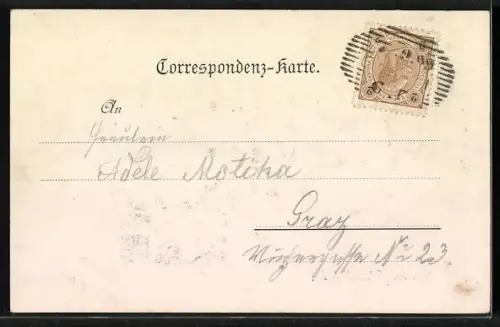 Correspondenz-Karte.
An
Fräulein
Adele Motika
Graz
No 23